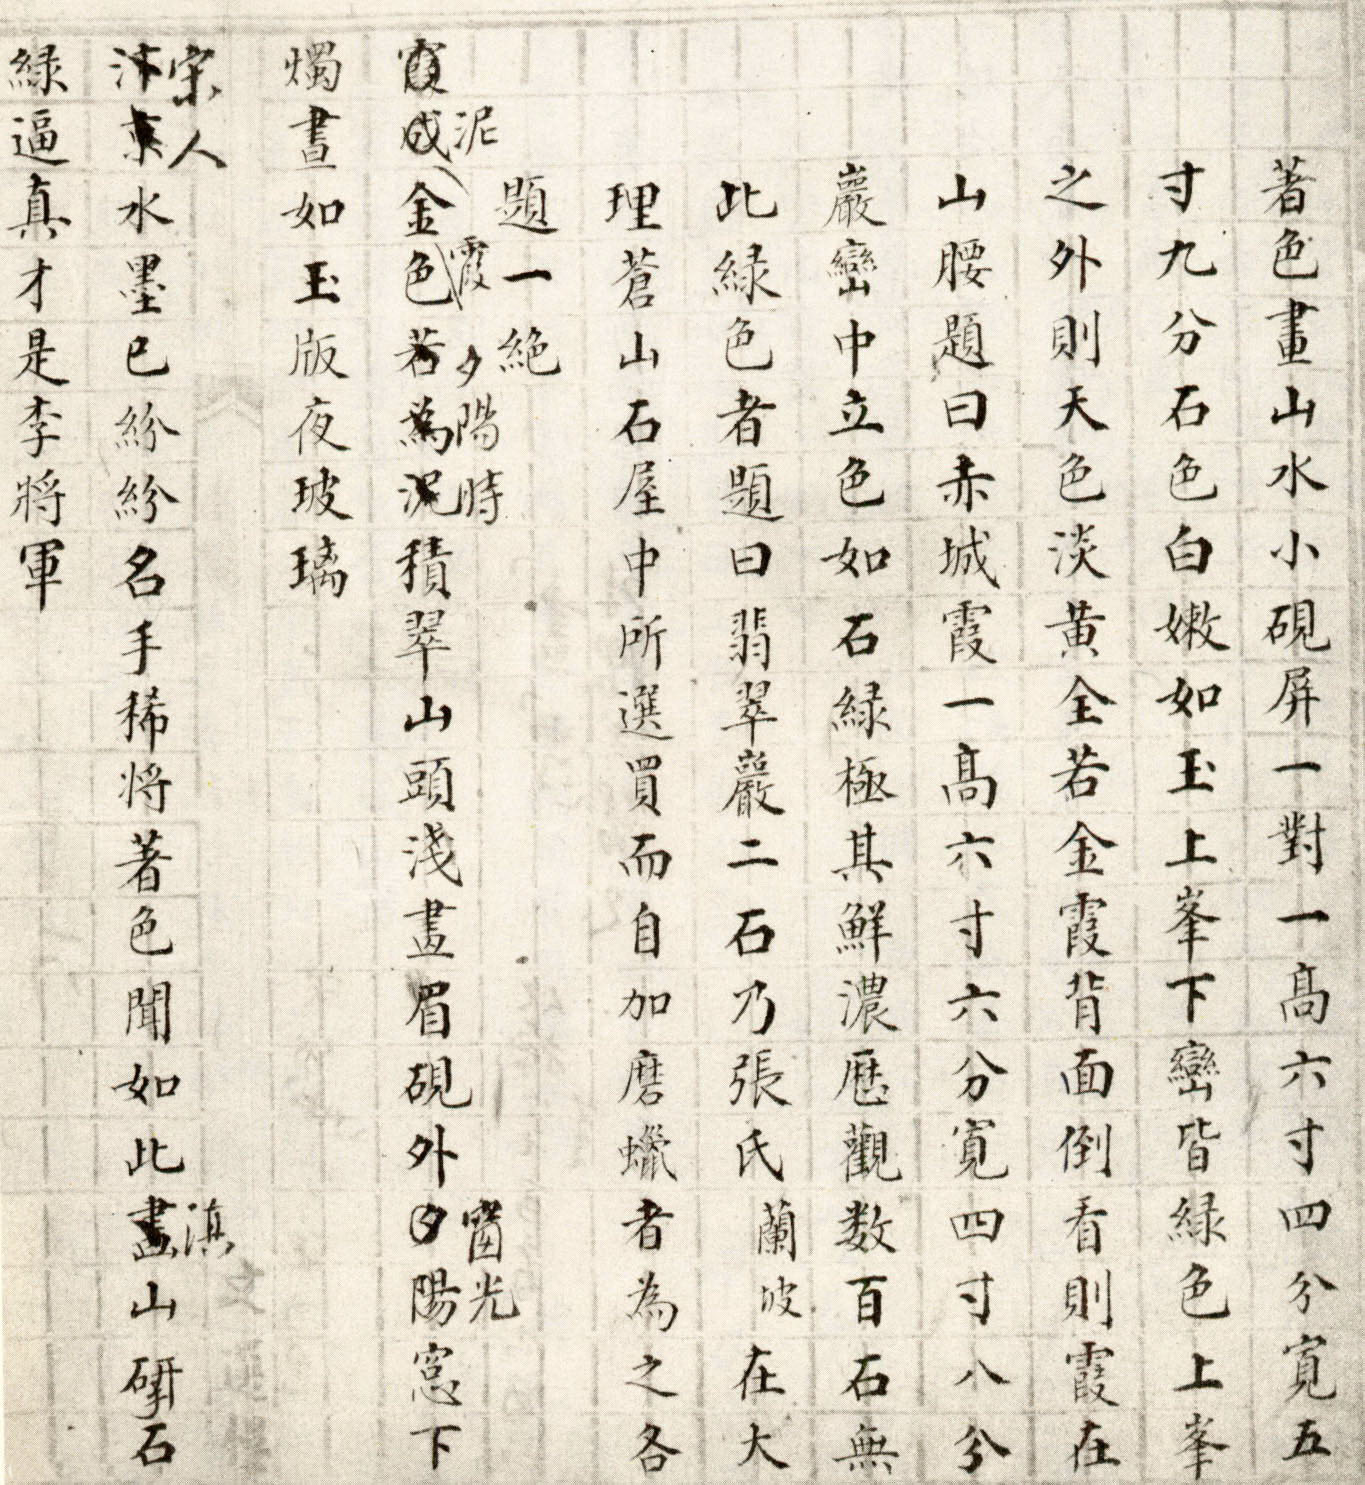 著色畫山水小硯屏一對一高六寸四分寬五
寸九分石色白嫩如玉上峯下巒皆綠色上峯
之外則天色淡黃全若金霞背面倒看則霞在
山腰題曰赤城霞一高六寸六分寬四寸八分
巖巒中立色如石綠極其鮮濃歷觀数百石無
此綠色者題曰翡翠巖二石乃張氏蘭坡在大
理蒼山石屋中所選買而自加磨蠟者為之各
題一絕
泥霞夕陽時窗光
霞成金色若為泥積翠山頭淺畫眉硯外夕陽窓下
燭晝如玉版夜玻璃
宋人滇
汴京水墨已紛紛名手稀將著色聞如此畫山研石
綠逼真才是李將軍